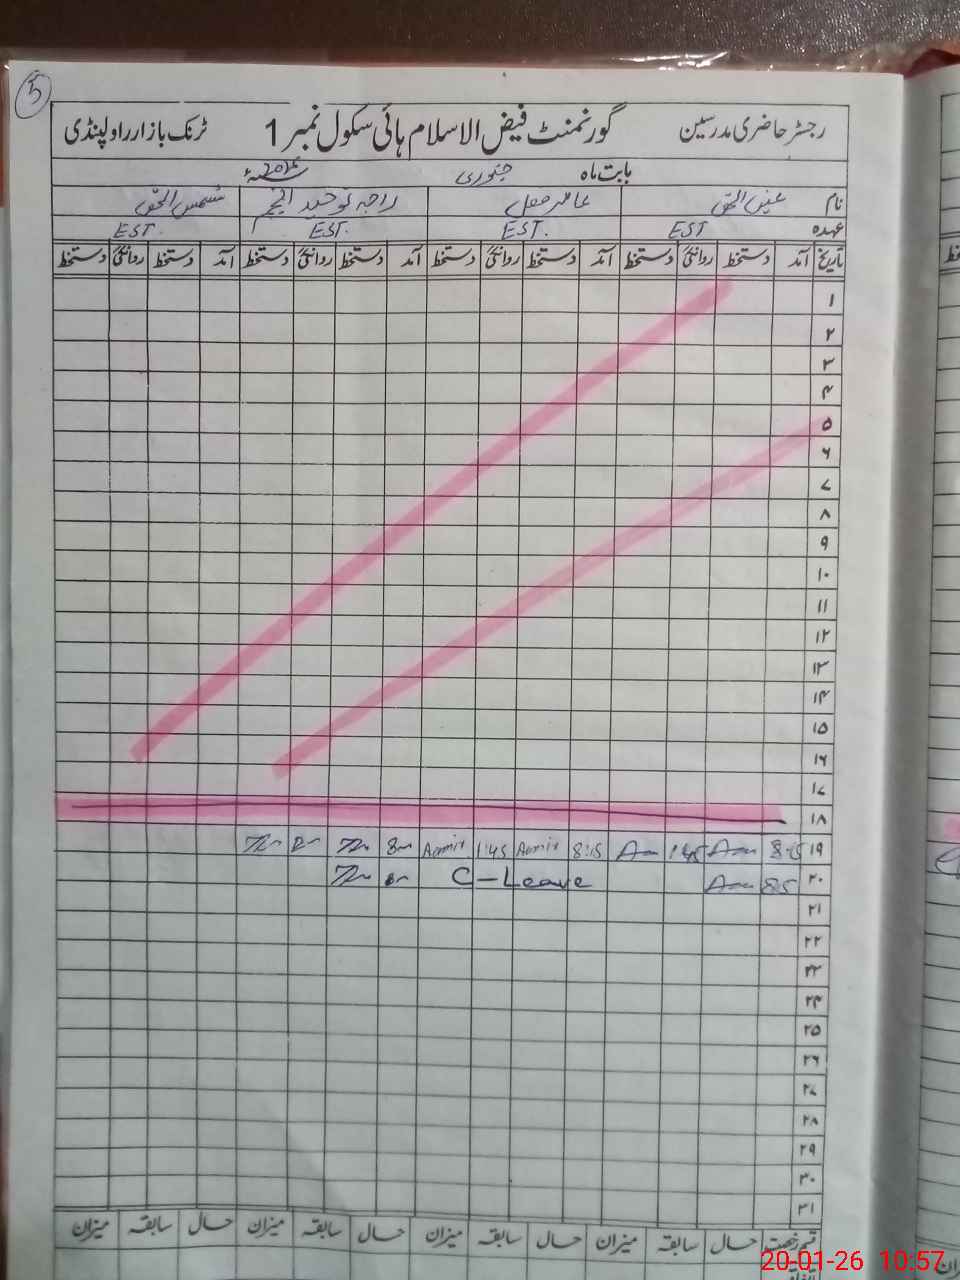 5
رجسٹر حاضری مدرسین گورنمنٹ فیض الاسلام ہائی سکول نمبر 1 ٹرنک بازار راولپنڈی
بابت ماہ جنوری
نام راجہ توحید انجم شمس الحق
عہدہ EST EST. EST. EST.
تاریخ آمد دستخط روانگی دستخط آمد دستخط روانگی دستخط آمد دستخط روانگی دستخط آمد دستخط روانگی دستخط
۱
۲
۳
۴
۵
۶
۷
۸
۹
۱۰
۱۱
۱۲
۱۳
۱۴
۱۵
۱۶
۱۷
۱۸
۱۹ 8:15 8:15 1:45
۲۰ C-Leave
۲۱
۲۲
۲۳
۲۴
۲۵
۲۶
۲۷
۲۸
۲۹
۳۰
۳۱
قسم رخصت حال سابقہ میزان حال سابقہ میزان حال سابقہ میزان حال سابقہ میزان
20-01-26 10:57